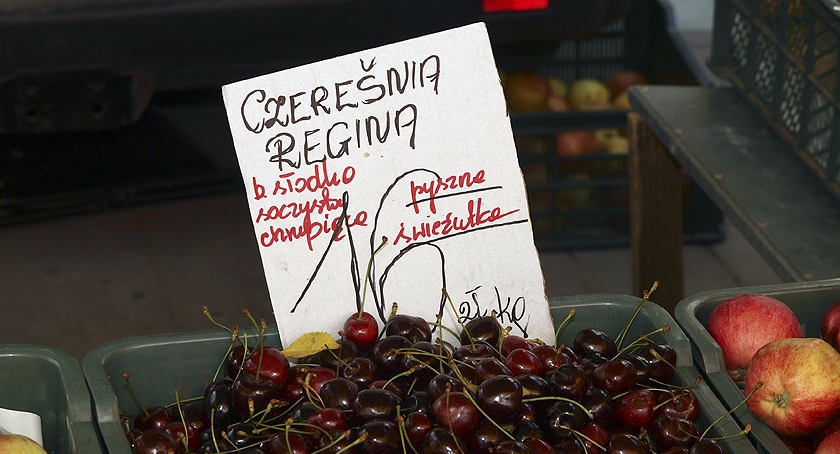 CZEREŚNIA
REGINA
b. słodka
soczysta
chrupiąca
pyszne
świeżutkie
16
zł. kg